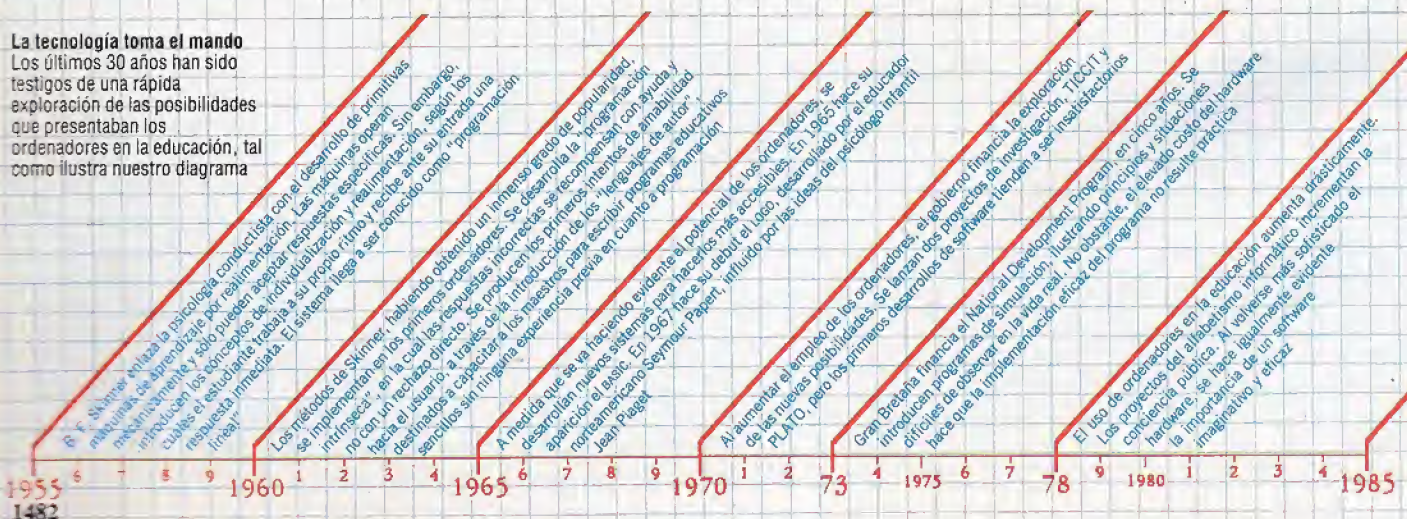 La tecnología toma el mando
Los últimos 30 años han sido
testigos de una rápida
exploración de las posibilidades
que presentaban los
ordenadores en la educación, tal
como ilustra nuestro diagrama
B. F. Skinner enlaza la psicología conductista con el desarrollo de primitivas
máquinas de aprendizaje por realimentación. Las máquinas operan
mecánicamente y sólo pueden aceptar respuestas específicas. Sin embargo,
introducen los conceptos de individualización y realimentación, según los
cuales el estudiante trabaja a su propio ritmo y recibe ante su entrada una
respuesta inmediata. El sistema llega a ser conocido como "programación
lineal"
Los métodos de Skinner, habiendo obtenido un inmenso grado de popularidad,
se implementan en los primeros ordenadores. Se desarrolla la "programación
intrínseca", en la cual las respuestas incorrectas se recompensan con ayuda y
no con un rechazo directo. Se producen los primeros intentos de amabilidad
hacia el usuario, a través de la introducción de los "lenguajes de autor"
destinados a capacitar a los maestros para escribir programas educativos
sencillos sin ninguna experiencia previa en cuanto a programación
A medida que se va haciendo evidente el potencial de los ordenadores, se
desarrollan nuevos sistemas para hacerlos más accesibles. En 1965 hace su
aparición el BASIC. En 1967 hace su debut el LOGO, desarrollado por el educador
norteamericano Seymour Papert, influido por las ideas del psicólogo infantil
Jean Piaget
Al aumentar el empleo de los ordenadores, el gobierno financia la exploración
de las nuevas posibilidades. Se lanzan dos proyectos de investigación, TICCIT y
PLATO, pero los primeros desarrollos de software tienden a ser insatisfactorios
Gran Bretaña financia el National Development Program en cinco años. Se
introducen programas de simulación, ilustrando principios y situaciones
difíciles de observar en la vida real. No obstante, el elevado costo del hardware
hace que la implementación eficaz del programa no resulte práctica
El uso de ordenadores en la educación aumenta drásticamente.
Los proyectos del alfabetismo informático incrementan la
conciencia pública. Al volverse más sofisticado el
hardware, se hace igualmente evidente
la importancia de un software
imaginativo y eficaz
1955 6 7 8 9 1960 1 2 3 4 1965 6 7 8 9 1970 1 2 73 4 1975 6 7 78 9 1980 1 2 3 4 1985
1482